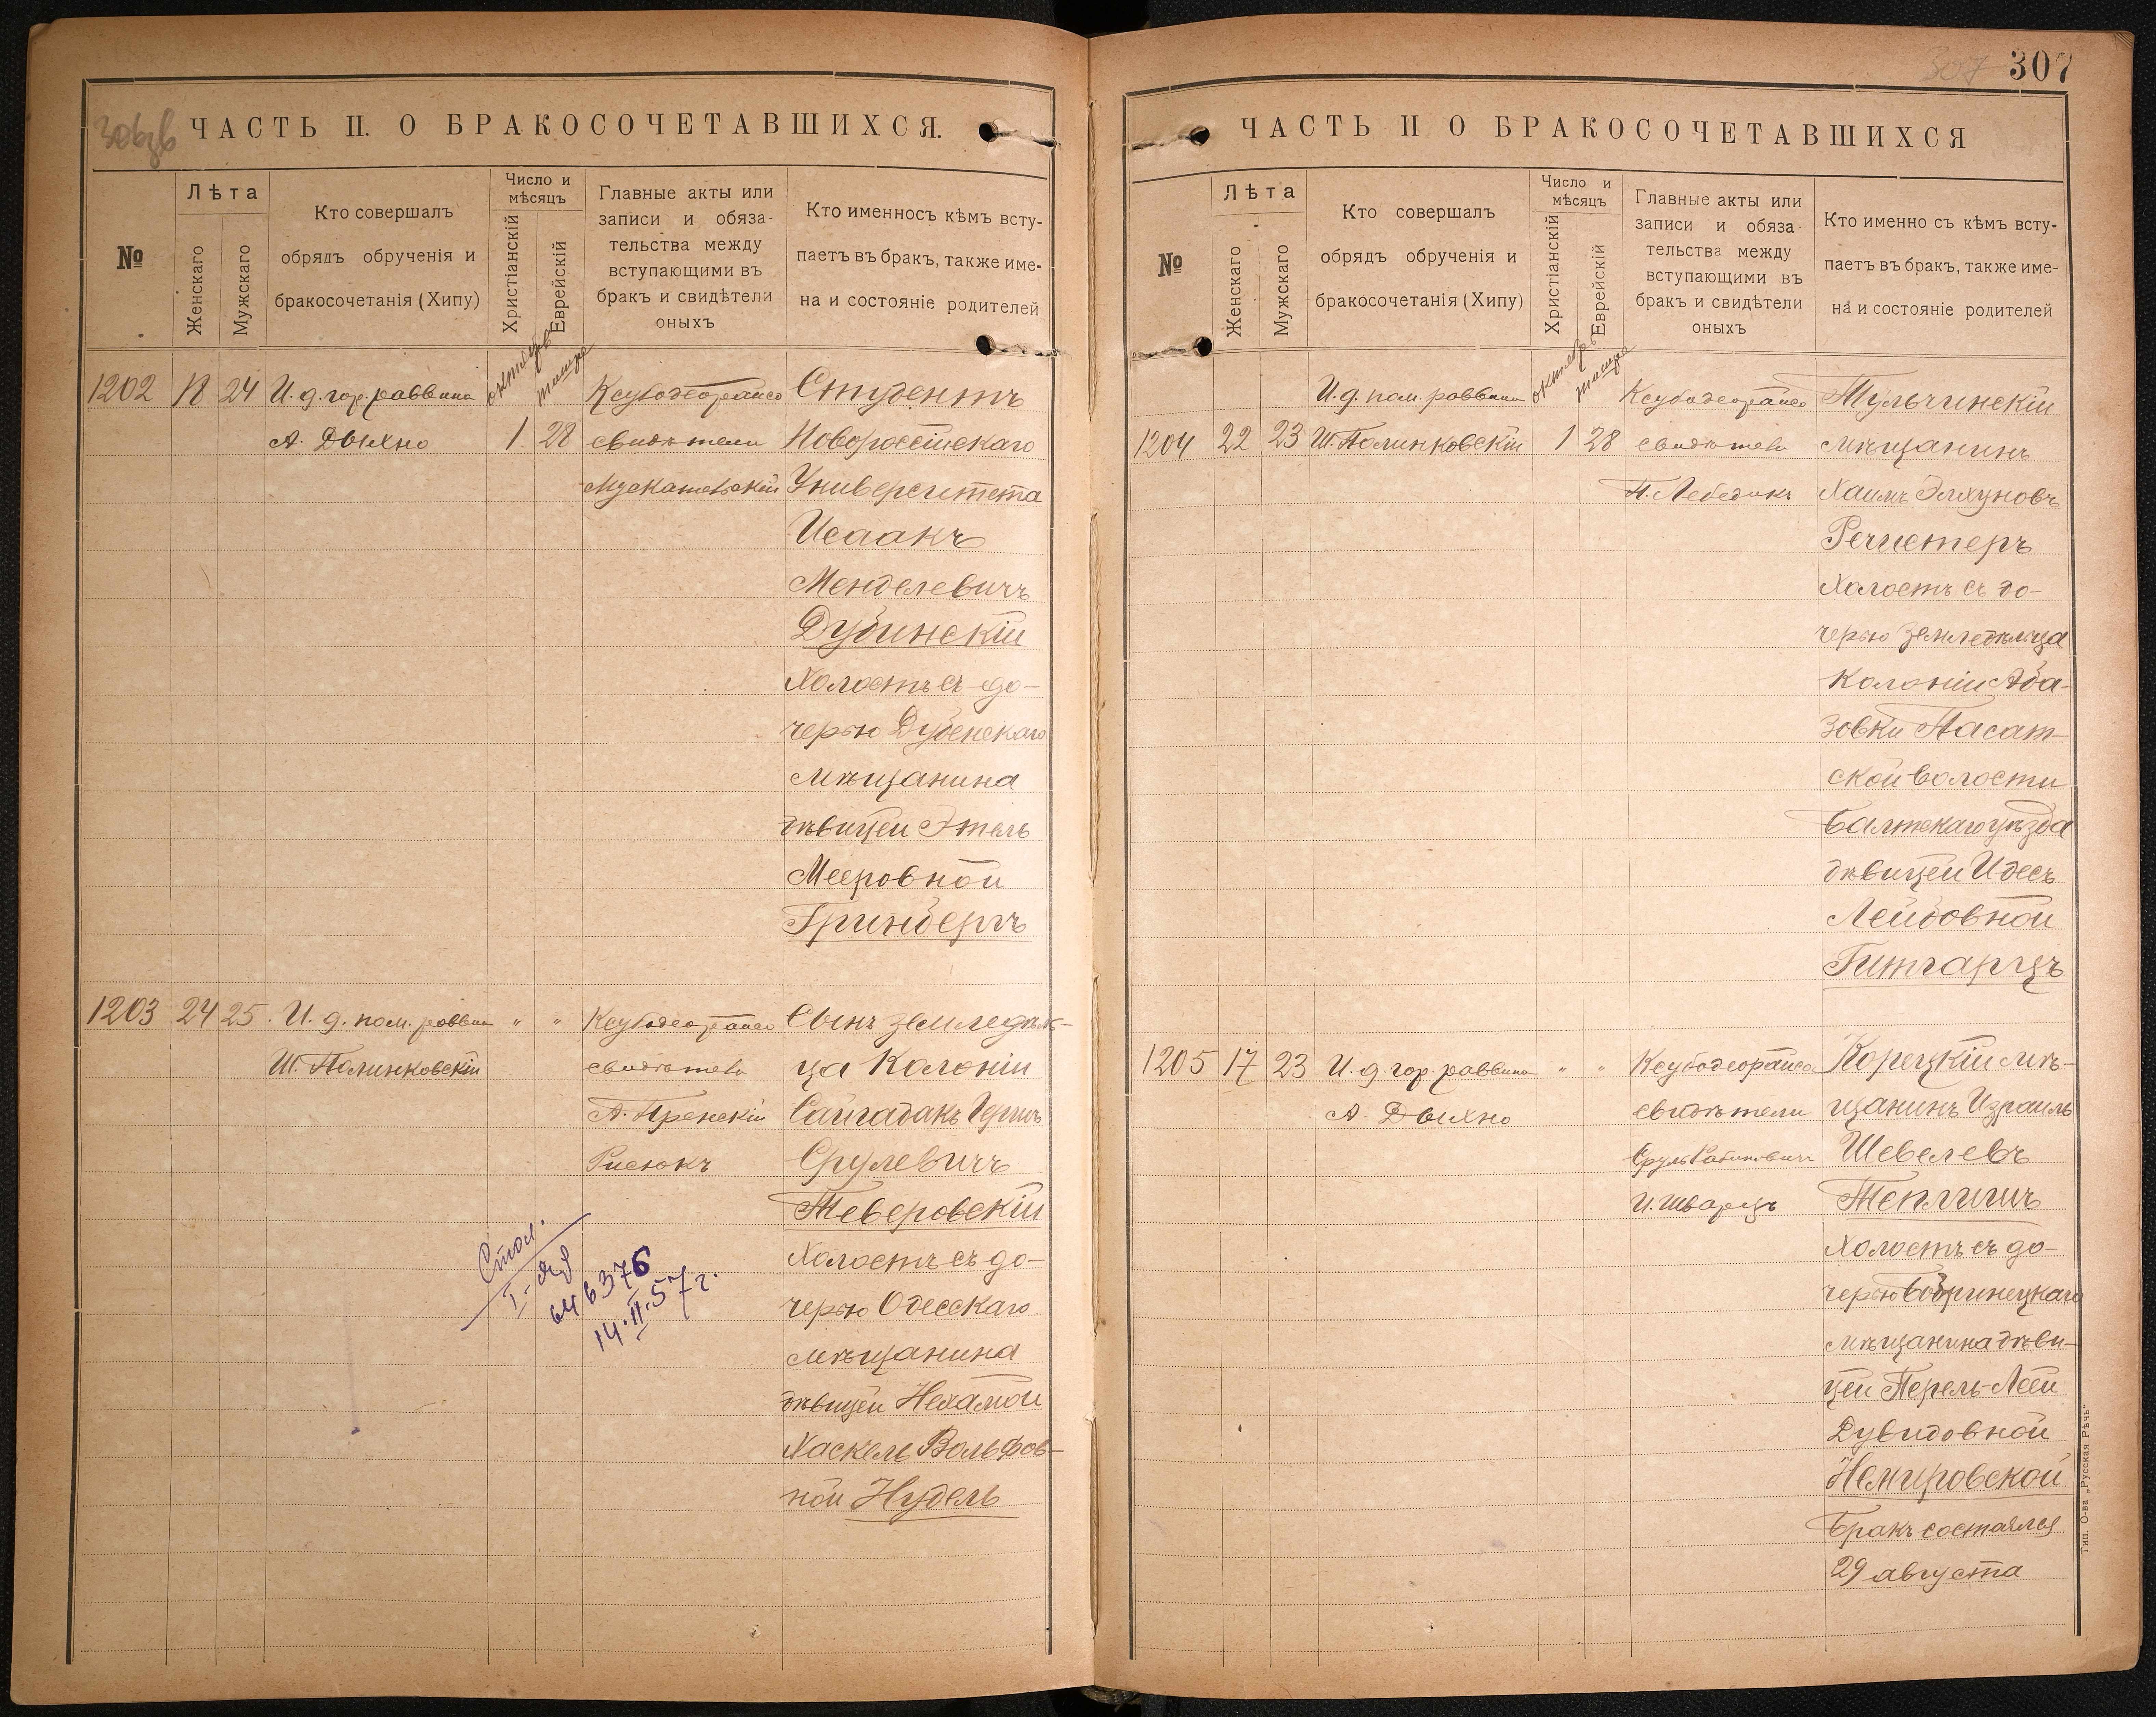 306зв
ЧАСТЬ II. О БРАКОСОЧЕТАВШИХСЯ.
№
Лѣта
Женскаго
Мужскаго
Кто совершалъ
обрядъ обрученія и
бракосочетанія (Хипу)
Число и
мѣсяцъ
Христіанскій
Еврейскій
Главные акты или
записи и обяза-
тельства между
вступающими въ
бракъ и свидѣтели
оныхъ
Кто именносъ кѣмъ всту-
паетъ въ бракъ, также име-
на и состояніе родителей
1202
18
24
И. д. гор. раввина
А. Дыхно
октября
тишре
1
28
свидѣтели
Студентъ
Новороссійскаго
Университета
Исаакъ
Менделевичъ
Дубинскій
Холостъ съ до-
черью Дубенскаго
мѣщанина
дѣвицей Этель
Мееровной
Гринбергъ
1203
24
25
И. д. пом. раввин
Ш. Полинковскій
"
"
свидѣтели
Сынъ земледѣль-
ца Колоніи
Сайгадакъ Герш
Срулевичъ
Теверовскій
Холостъ съ до-
черью Одесскаго
мѣщанина
дѣвицей Нехамой
Хаскель Вольфов-
ной Нудель
646376
14.II.57г.
307
307
ЧАСТЬ II О БРАКОСОЧЕТАВШИХСЯ
№
Лѣта
Женскаго
Мужскаго
Кто совершалъ
обрядъ обрученія и
бракосочетанія (Хипу)
Число и
мѣсяцъ
Христіанскій
Еврейскій
Главные акты или
записи и обяза
тельства между
вступающими въ
бракъ и свидѣтели
оныхъ
Кто именно съ кѣмъ всту-
паетъ въ бракъ, также име-
на и состояніе родителей
1204
22
23
И. д. пом. раввина
Ш. Полинковскій
октября
тишре
1
28
свидѣтели
Н. Лебедикъ
Тульчинскій
мѣщанинъ
Хаимъ Элхуновъ
Речистеръ
Холостъ съ до-
черью земледѣльца
Колоніи Аба-
зовки Пасат-
ской волости
Балтскаго уѣзда
дѣвицей Идесъ
Лейбовной
Гитгарцъ
1205
17
23
И. д. гор. раввина
А. Дыхно
"
"
свидѣтели
Сруль Рабиновичъ
И. Шварцъ
Корецкій мѣ-
щанинъ Израиль
Шевелевъ
Теплицкій
Холостъ съ до-
черью Бобринецкаго
мѣщанина дѣви-
цей Перель-Леей
Дувидовной
Немировской
Бракъ состоялся
29 августа
Тип. О-ва „Русская Рѣчь"